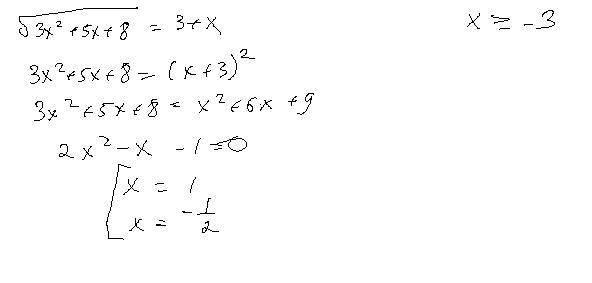 √(3x² + 5x + 8) = 3 + x
x ≥ -3
3x² + 5x + 8 = (x + 3)²
3x² + 5x + 8 = x² + 6x + 9
2x² - x - 1 = 0
[ x = 1
x = -1/2